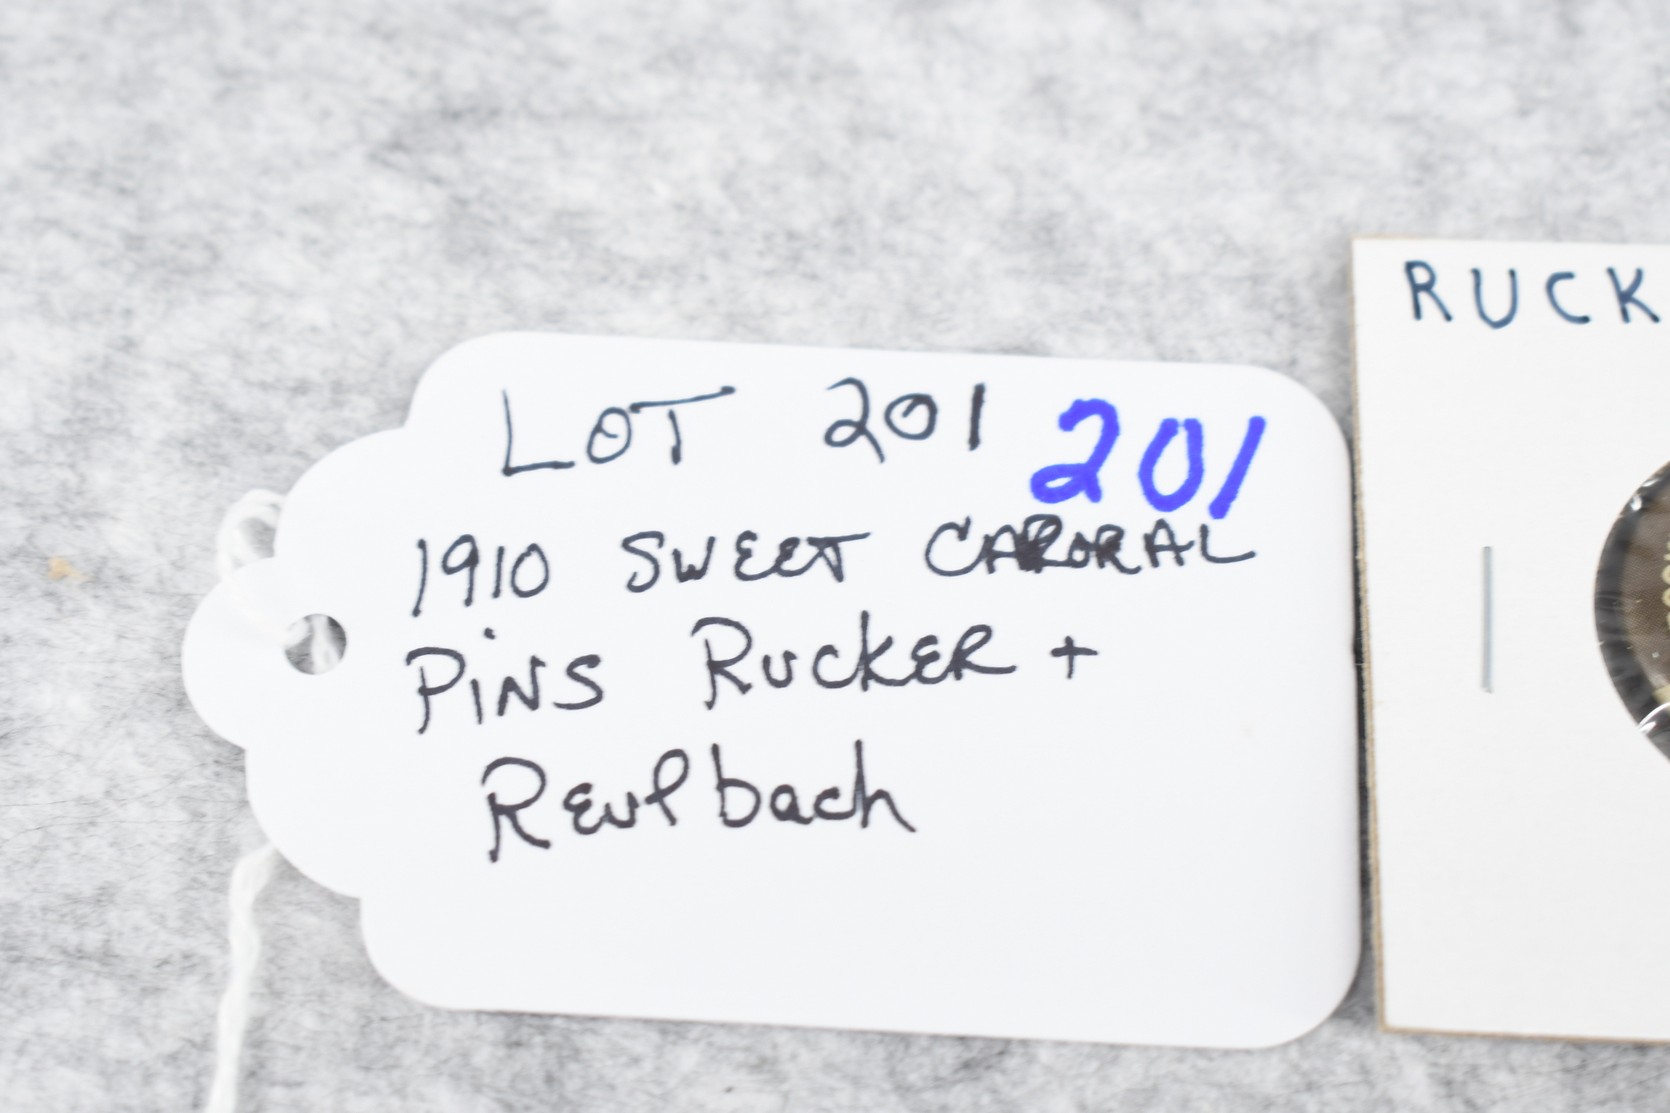 LOT 201 201
1910 SWEET CAPORAL
PiNS RUCKER +
Reulbach
RUCK